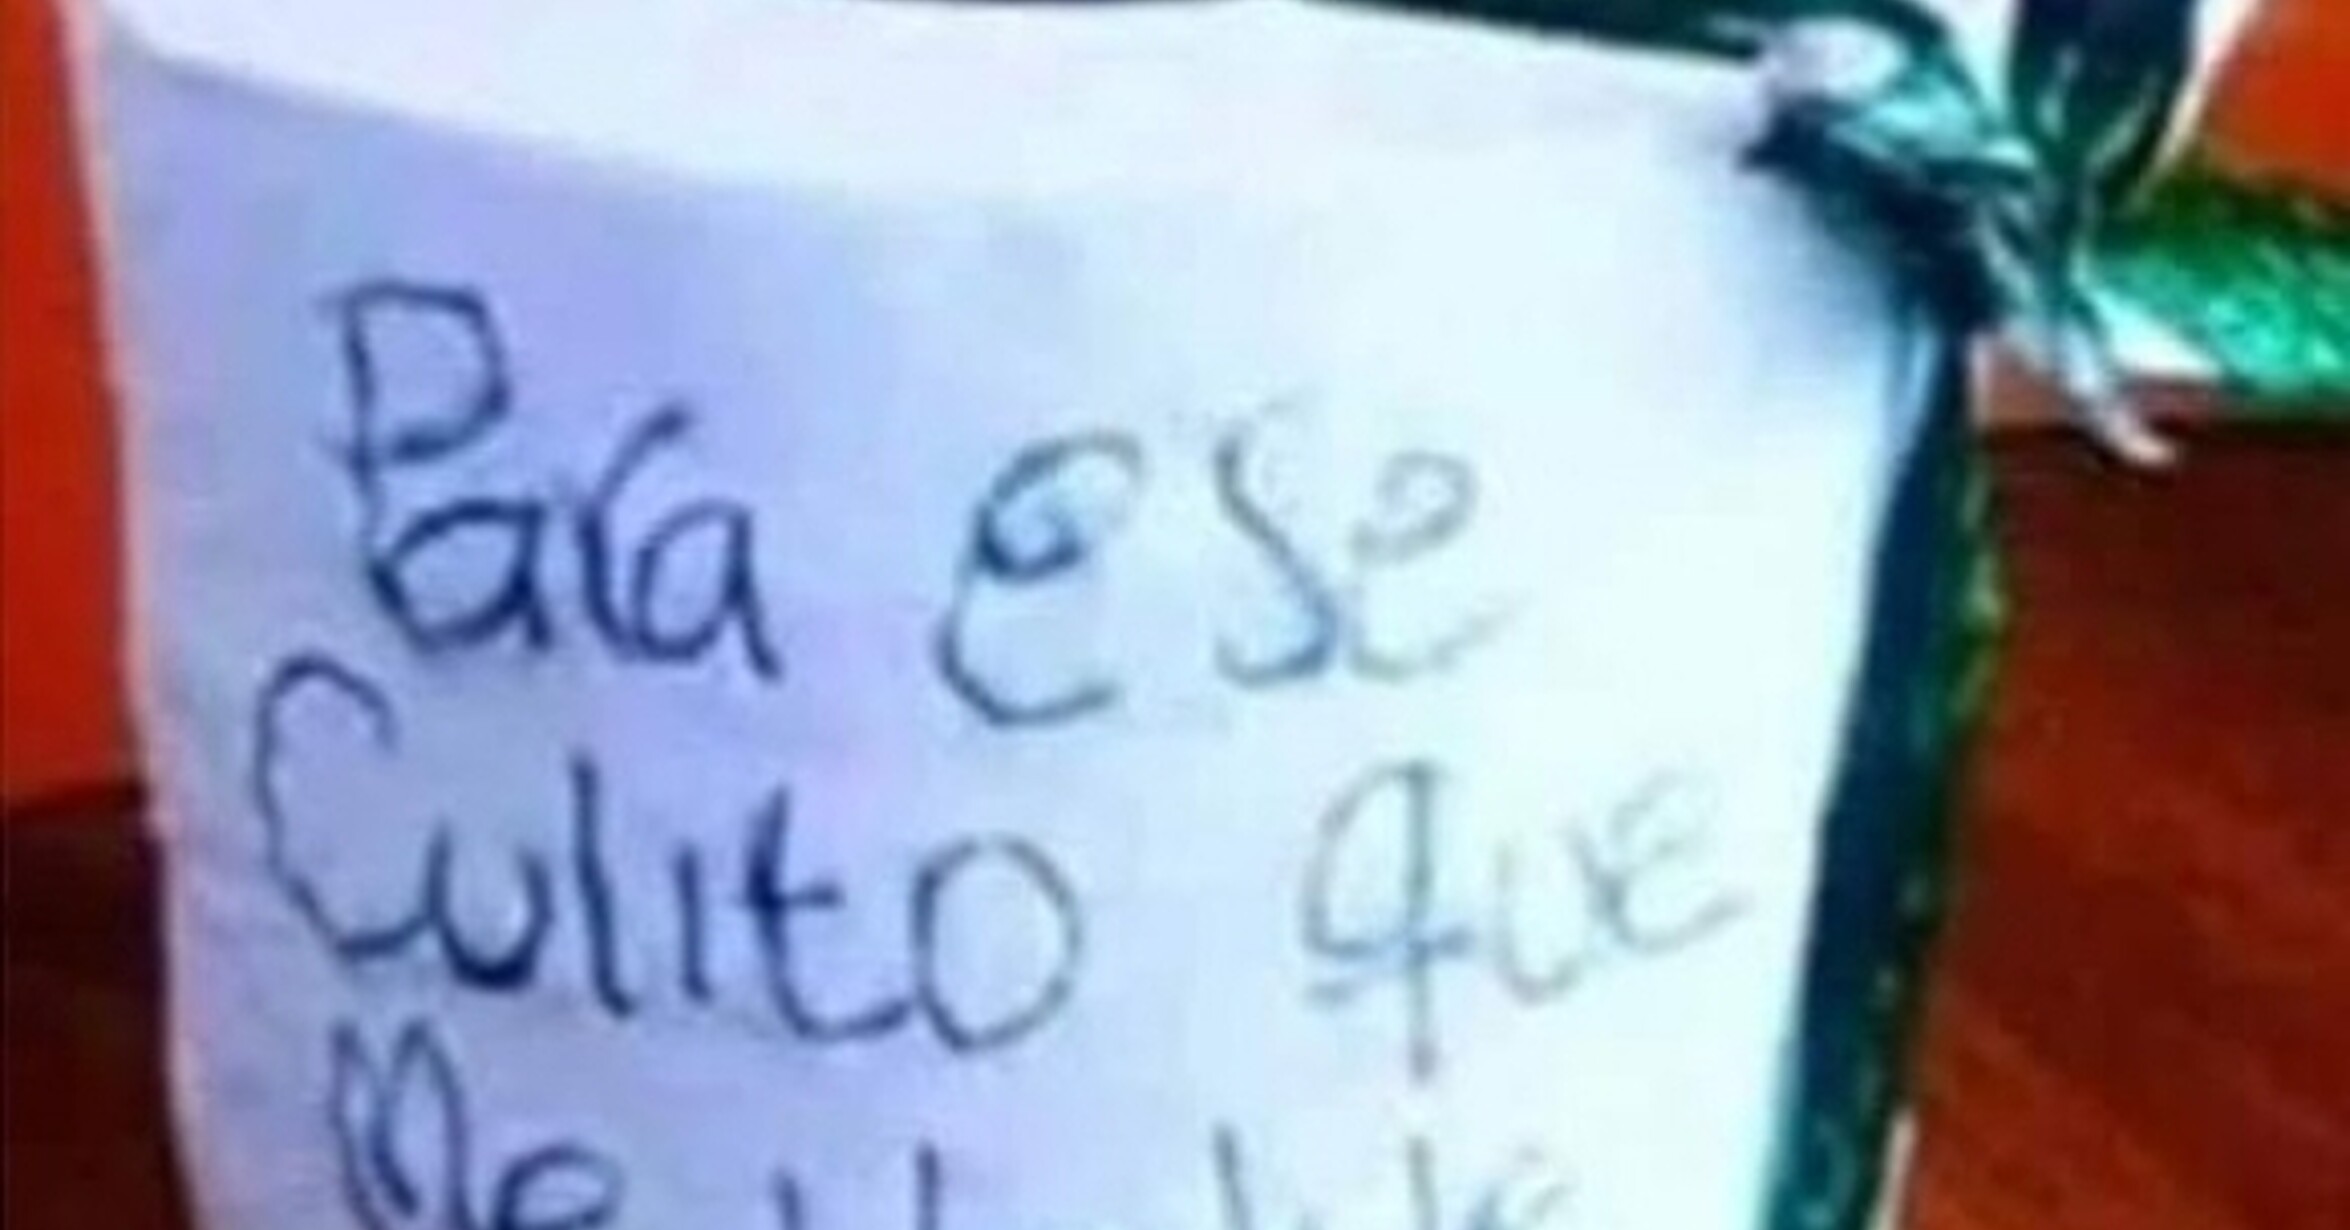 Para ese
Culito que
Me